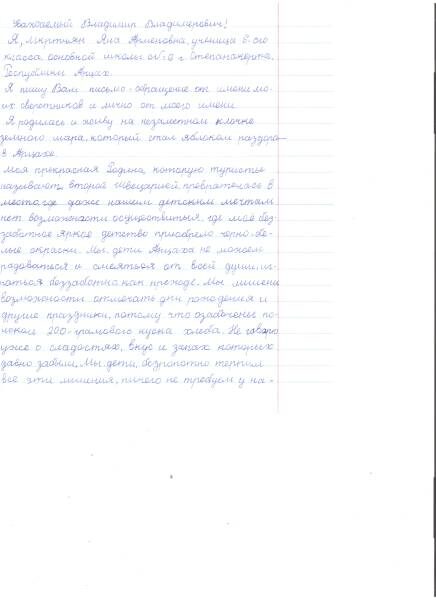 Уважаемый Владимир Владимирович!
Я, Мкртчян Яна Арменовна, ученица 6-ого
класса основной школы N: 9 г. Степанакерта,
Республики Арцах.
Я пишу Вам письмо-обращение от имени мо-
их сверстников и лично от моего имени
Я родилась и живу на незаметном клочке
земного шара, который стал яблоком раздора-
в Арцахе.
Моя прекрасная Родина, которую туристы
называют второй Швецарией, превратилась в
место, где даже нашим детским мечтам
нет возможности осуществиться, где моё без-
заботное яркое детство приобрело черно-бе-
лые окраски. Мы, дети Арцаха не можем
радоваться и смеяться от всей души, иг-
раться беззаботно как прежде. Мы лишены
возможности отмечать дни рождения и
другие праздники, потому что озабочены по-
иском 200-грамового куска хлеба. Не говорю
уже о сладостях, вкус и запах которых
давно забыли. Мы, дети, безропотно терпим
все эти лишения, ничего не требуем у на-